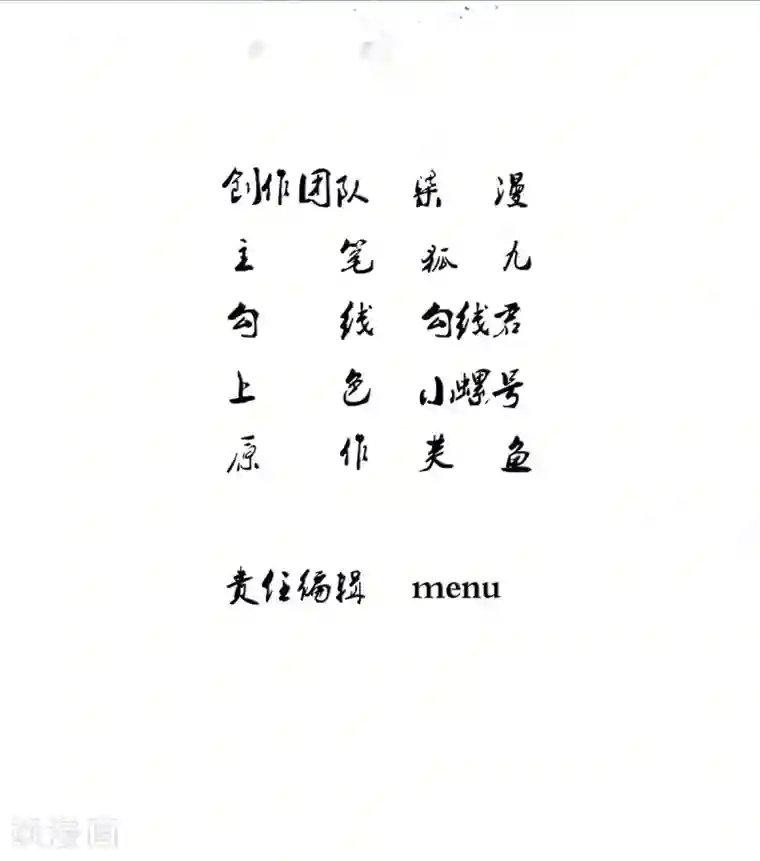 创作团队 柒漫
主笔 狐九
勾线 勾线君
上色 小螺号
原作 芙鱼
责任编辑 menu